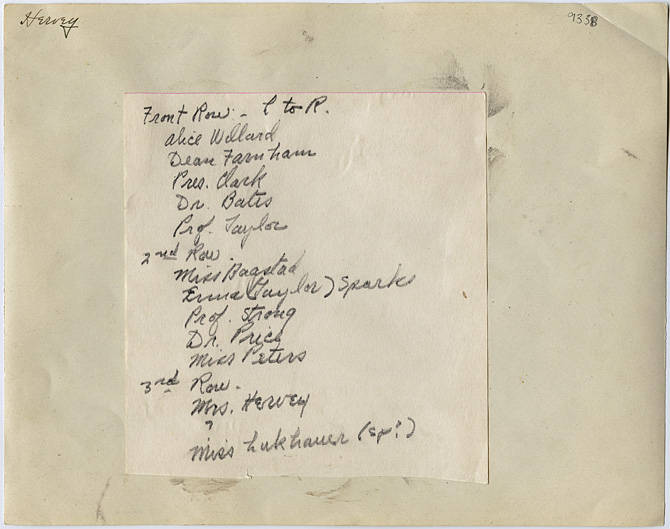 Hervey
9358
Front Row - L to R.
Alice Willard
Dean Farnham
Pres. Clark
Dr. Bates
Prof. Taylor
2nd Row.
Miss Bagstad
Erma (Taylor) Sparks
Prof. Strong
Dr. Price
Miss Peters
3rd Row.
Mrs. Hervey
?
Miss Lukhauer (sp?)